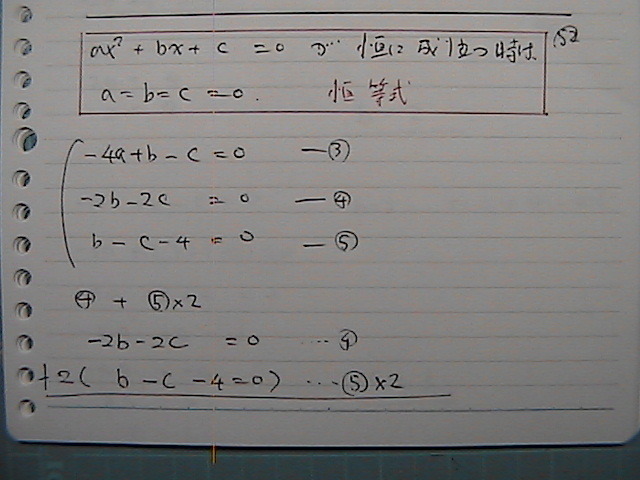 ax² + bx + c = 0 が 恒に成り立つ時は
a = b = c = 0. 恒等式
-4a + b - c = 0 — ③
-2b - 2c = 0 — ④
b - c - 4 = 0 — ⑤
④ + ⑤×2
-2b - 2c = 0 … ④
+2( b - c - 4 = 0) … ⑤×2